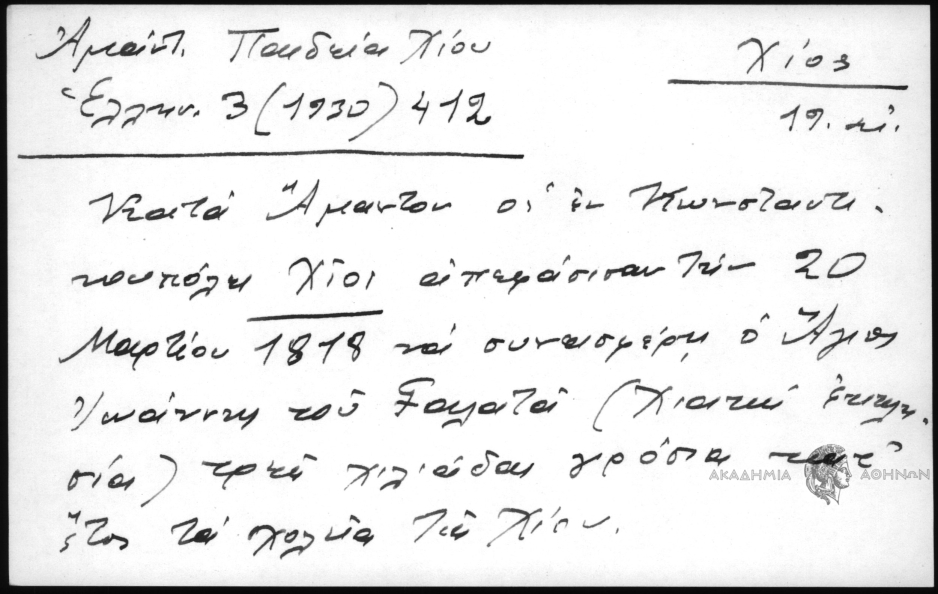 Ἀμάντ. Παιδεία Χίου
Ἑλλην. 3 (1930) 412
Χίος
19. αἰ.
Κατὰ Ἄμαντον οἱ ἐν Κωνσταντι-
νουπόλει Χῖοι ἀπεφάσισαν τὴν 20
Μαρτίου 1818 νὰ συνεισφέρῃ ὁ Ἅγιος
Ἰωάννης τοῦ Γαλατᾶ (Χιακὴ ἐκκλη-
σία) τρεῖς χιλιάδας γρόσια κατ'
ἔτος τὰ σχολεῖα τῆς Χίου.
ΑΚΑΔΗΜΙΑ ΑΘΗΝΩΝ